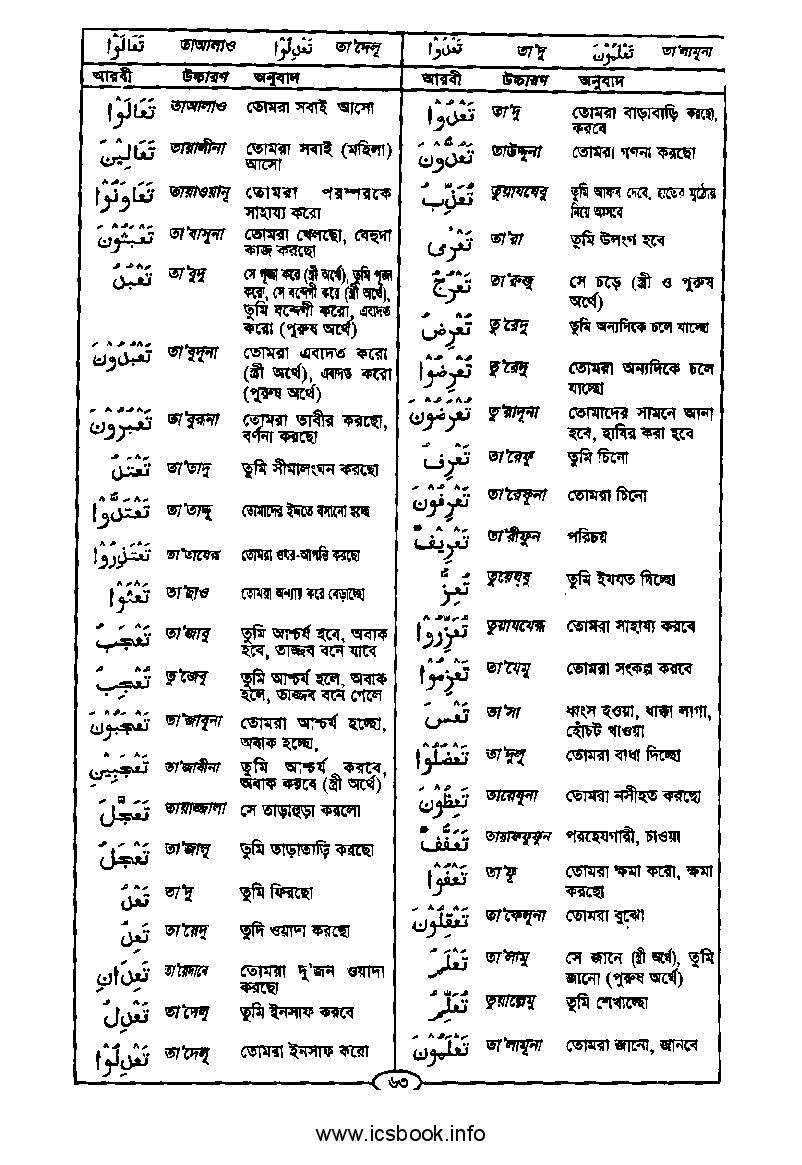 تَعَالَوْا তাআলাও تَعْدِلُوْا তা'দেলূ
আরবী উচ্চারণ অনুবাদ
تَعَالَوْا তাআলাও তোমরা সবাই আসো
تَعَالَيْنَ তায়ালীনা তোমরা সবাই (মহিলা)
আসো
تَعَاوَنُوْا তায়াওয়ানূ তোমরা পরস্পরকে
সাহায্য করো
تَعْبَثُوْنَ তা'বাসূনা তোমরা খেলছো, বেহুদা
কাজ করছো
تَعْبُدُ তা'বুদু সে পূজা করে (স্ত্রী অর্থে), তুমি পূজা
করো, সে বন্দেগী করে (স্ত্রী অর্থে),
তুমি বন্দেগী করো, এবাদত
করো (পুরুষ অর্থে)
تَعْبُدُوْنَ তা'বুদূনা তোমরা এবাদত করো
(স্ত্রী অর্থে), এবাদত করো
(পুরুষ অর্থে)
تَعْبُرُوْنَ তা'বুরূনা তোমরা তাবীর করছো,
বর্ণনা করছো
تَعْتَدُ তা'তাদু তুমি সীমালংঘন করছো
تَعْتَدُّوْا তা'তাদ্দু তোমাদের ইদ্দতে বসানো হচ্ছে
تَعْتَذِرُوْا তা'তাযের তোমরা ওযর-আপত্তি করছো
تَعْثَوْا তা'ছাও তোমরা অন্যায় করে বেড়াচ্ছো
تَعْجَبُ তা'জাবু তুমি আশ্চর্য হবে, অবাক
হবে, তাজ্জব বনে যাবে
تُعْجِبُ তু'জেবু তুমি আশ্চর্য হলে, অবাক
হলে, তাজ্জব বনে গেলে
تَعْجَبُوْنَ তা'জাবূনা তোমরা আশ্চর্য হচ্ছো,
অবাক হচ্ছো,
تَعْجَبِيْنَ তা'জাবীনা তুমি আশ্চর্য করবে,
অবাক করবে (স্ত্রী অর্থে)
تَعَجَّلَ তায়াজ্জালা সে তাড়াহুড়া করলো
تَعْجَلُ তা'জালু তুমি তাড়াতাড়ি করছো
تَعْدُ তা'দু তুমি ফিরছো
تَعِدُ তা'য়েদু তুদি ওয়াদা করছো
تَعِدَانِ তা'য়েদানে তোমরা দু'জন ওয়াদা
করছো
تَعْدِلُ তা'দেলু তুমি ইনসাফ করবে
تَعْدِلُوْا তা'দেলূ তোমরা ইনসাফ করো
تَعْدُوْا তা'দু تَعْلَمُوْنَ তা'লামূনা
আরবী উচ্চারণ অনুবাদ
تَعْدُوْا তা'দু তোমরা বাড়াবাড়ি করছো,
করবে
تَعُدُّوْنَ তাউদ্দূনা তোমরা গণনা করছো
تُعَذِّبُ তুয়াযযেবু তুমি আযাব দেবে, হাতের মুঠোয়
নিয়ে আসবে
تَعْرٰى তা'রা তুমি উলংগ হবে
تَعْرُجُ তা'রুজু সে চড়ে (স্ত্রী ও পুরুষ
অর্থে)
تُعْرِضُ তু'রেদু তুমি অন্যদিকে চলে যাচ্ছো
تُعْرِضُوْا তু'রেদু তোমরা অন্যদিকে চলে
যাচ্ছো
تُعْرَضُوْنَ তু'রাদূনা তোমাদের সামনে আনা
হবে, হাযির করা হবে
تَعْرِفُ তা'রেফু তুমি চিনো
تَعْرِفُوْنَ তা'রেফূনা তোমরা চিনো
تَعْرِيْفٌ তা'রীফুন পরিচয়
تُعِزُّ তুয়েযযু তুমি ইযযত দিচ্ছো
تُعَزِّرُوْا তুয়াযযেরূ তোমরা সাহায্য করবে
تَعْزِمُوْا তা'যেমূ তোমরা সংকল্প করবে
تَعْسَ তা'সা ধ্বংস হওয়া, ধাক্কা লাগা,
হোঁচট খাওয়া
تَعْضُلُوْا তা'দুলূ তোমরা বাধা দিচ্ছো
تَعِظُوْنَ তায়েযূনা তোমরা নসীহত করছো
تَعَفُّفٌ তায়াফফুফুন পরহেযগারী, চাওয়া
تَعْفُوْا তা'ফূ তোমরা ক্ষমা করো, ক্ষমা
করছো
تَعْقِلُوْنَ তা'কেলূনা তোমরা বুঝো
تَعْلَمُ তা'লামু সে জানে (স্ত্রী অর্থে), তুমি
জানো (পুরুষ অর্থে)
تُعَلِّمُ তুয়াল্লেমু তুমি শেখাচ্ছো
تَعْلَمُوْنَ তা'লামূনা তোমরা জানো, জানবে
৬৩
www.icsbook.info